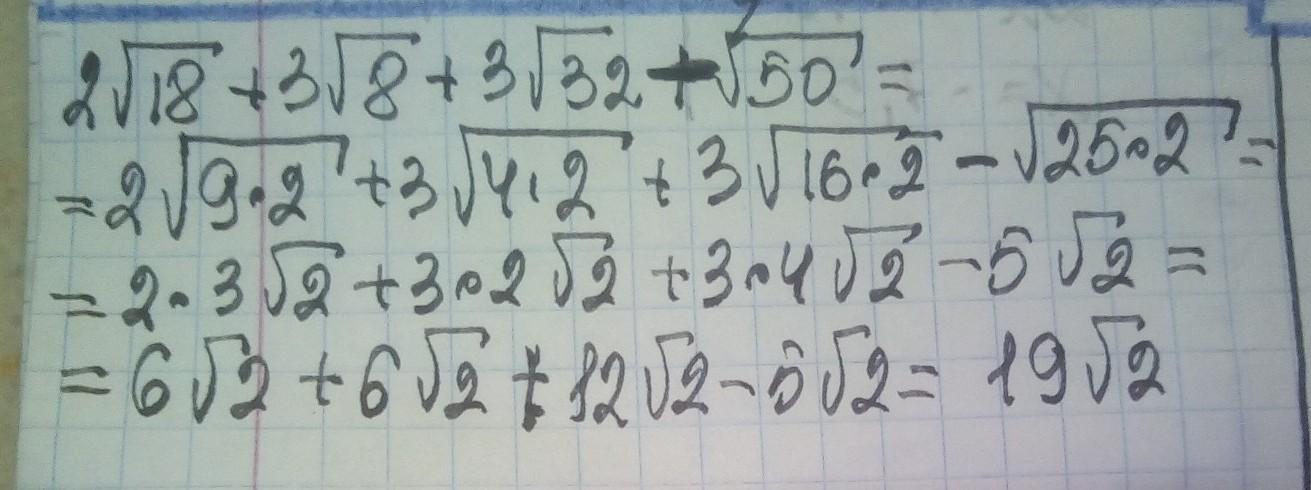 2√18 + 3√8 + 3√32 - √50 =
= 2√9·2 + 3√4·2 + 3√16·2 - √25·2 =
= 2·3√2 + 3·2√2 + 3·4√2 - 5√2 =
= 6√2 + 6√2 + 12√2 - 5√2 = 19√2